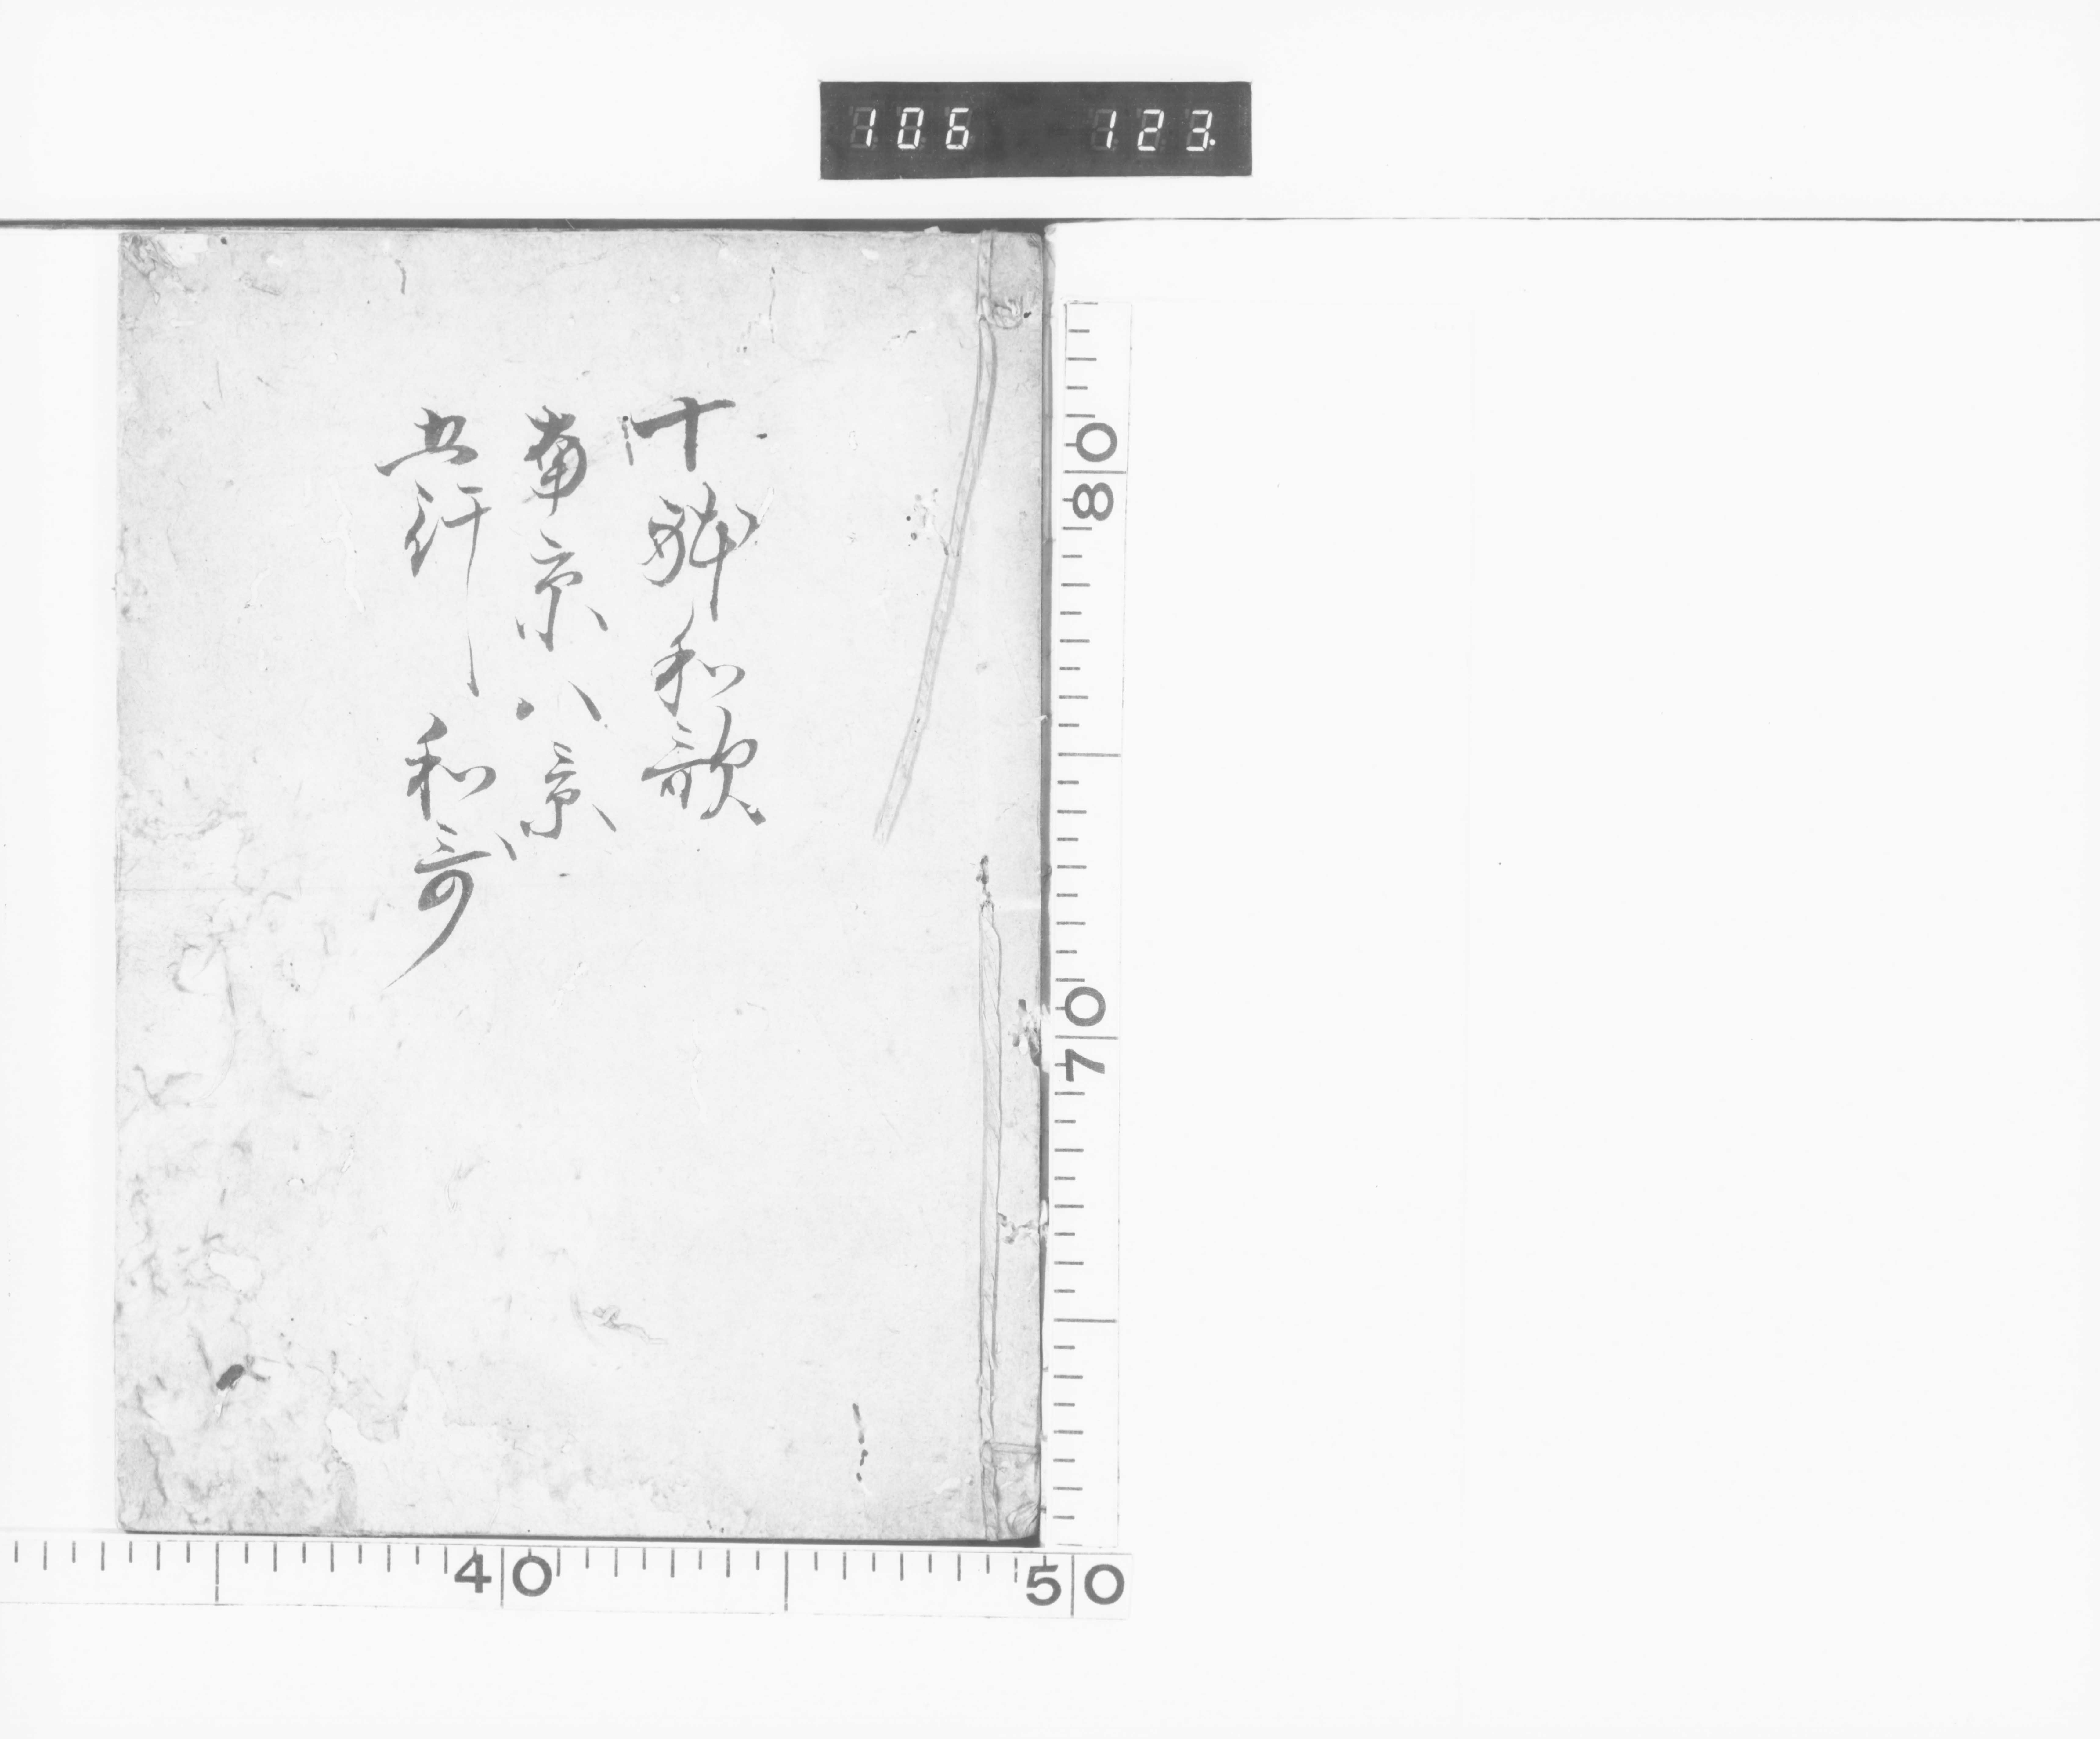 106 123
十躰和歌
南京八景
五行和哥
80
70
40
50